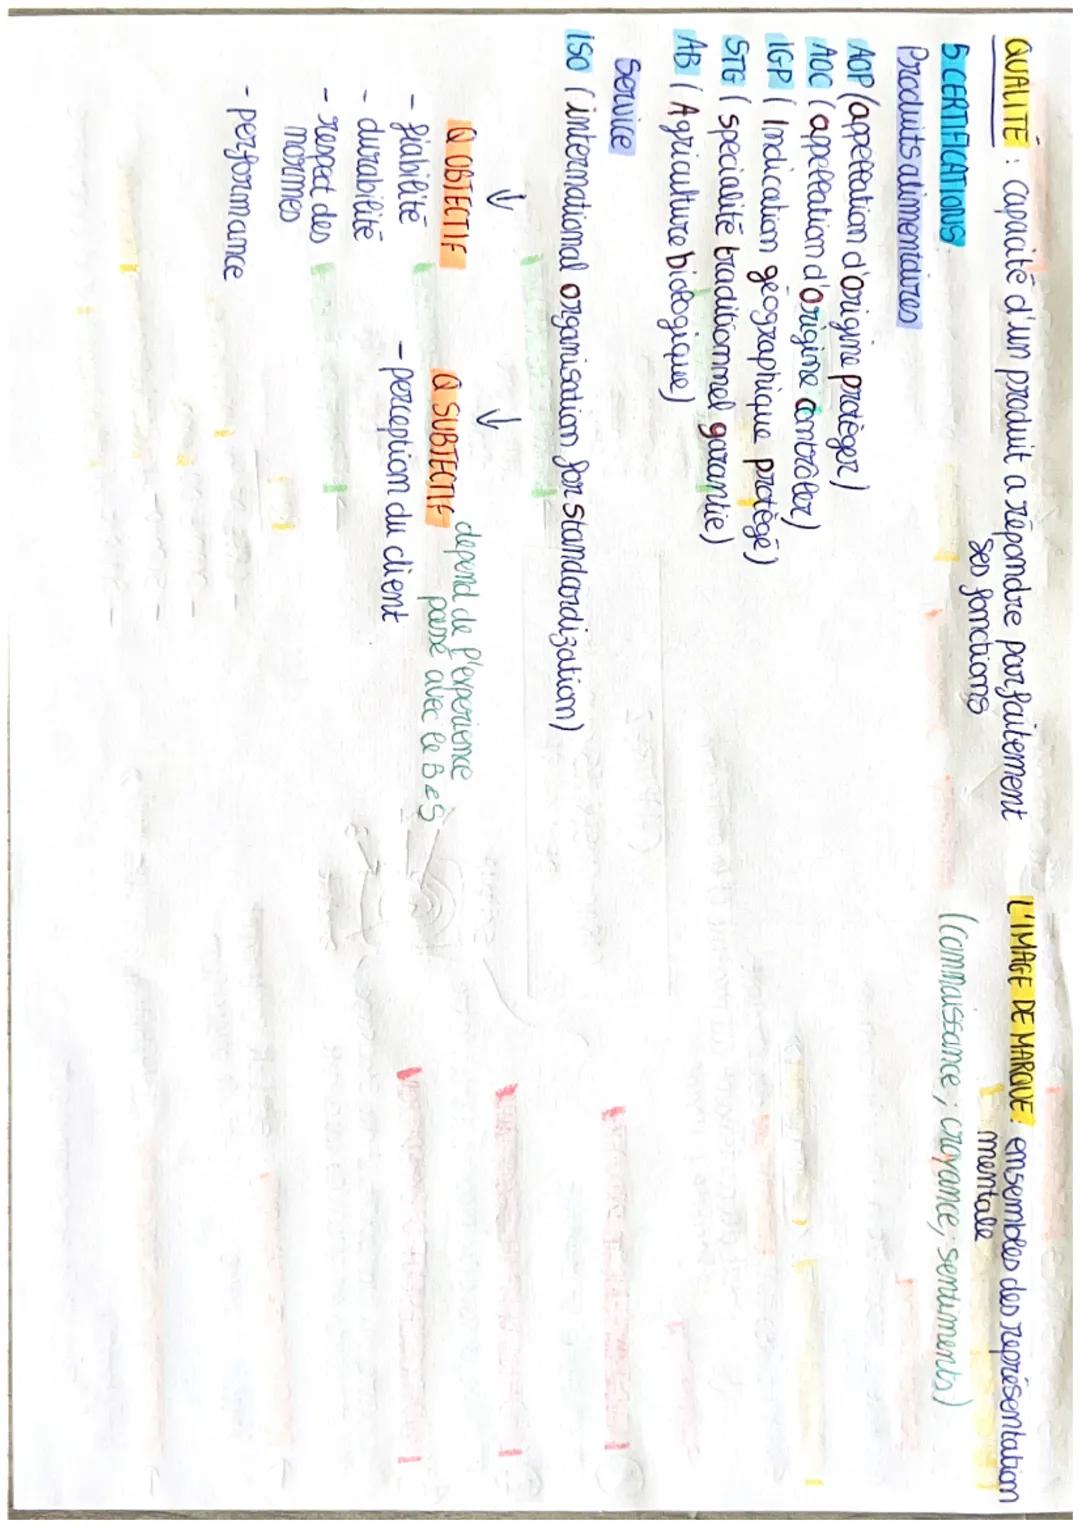 QUALITÉ : capacité d'un produit a répondre parfaitement
ses fonctions
5 CERTIFICATIONS
Produits alimentaires
AOP (appellation d'origine protèger)
AOC (apellation d'origine contrôler)
IGP (Indication géographique protègé)
STG (specialité traditionnel garantie)
AB (Agriculture biologique)
Service
ISO (international organisation for standardization)
↓
Q OBJECTIF
- fiabilité
- durabilité
- respect des
normes
- performance
↓
Q SUBJECTIF
depend de l'experience
passé avec le B et S
- perception du client
L'IMAGE DE MARQUE : ensembles des représentation
mentale
(connaissance ; croyance ; sentiments)